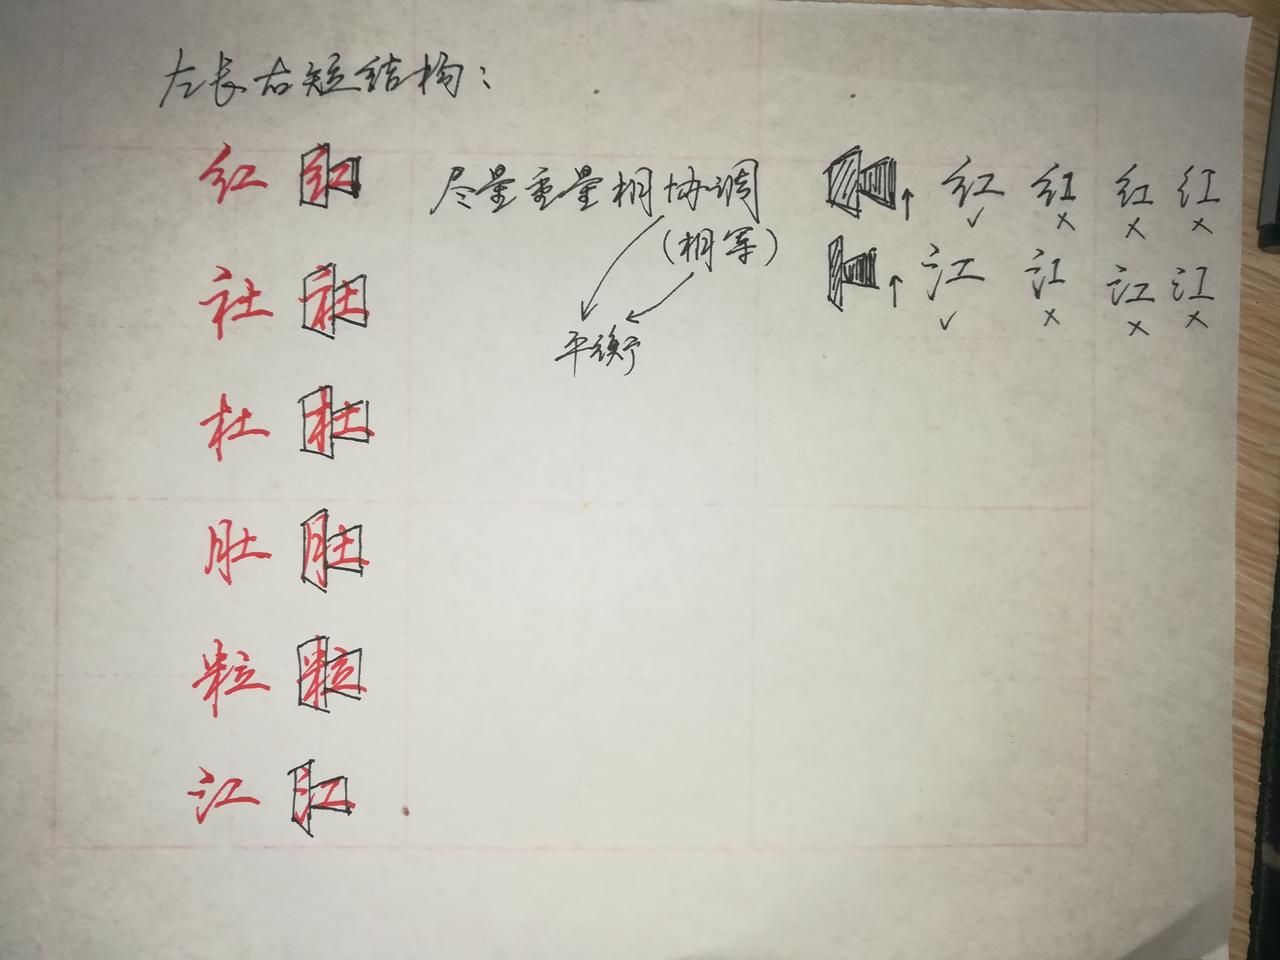 左长右短结构：
红 红 尽量重量相协调 ↑ 红 红 红 红
✓ × × ×
(相等)
社 社 ↑ 江 江 江 江
✓ × × ×
平衡
杜 杜
肚 肚
粒 粒
江 江